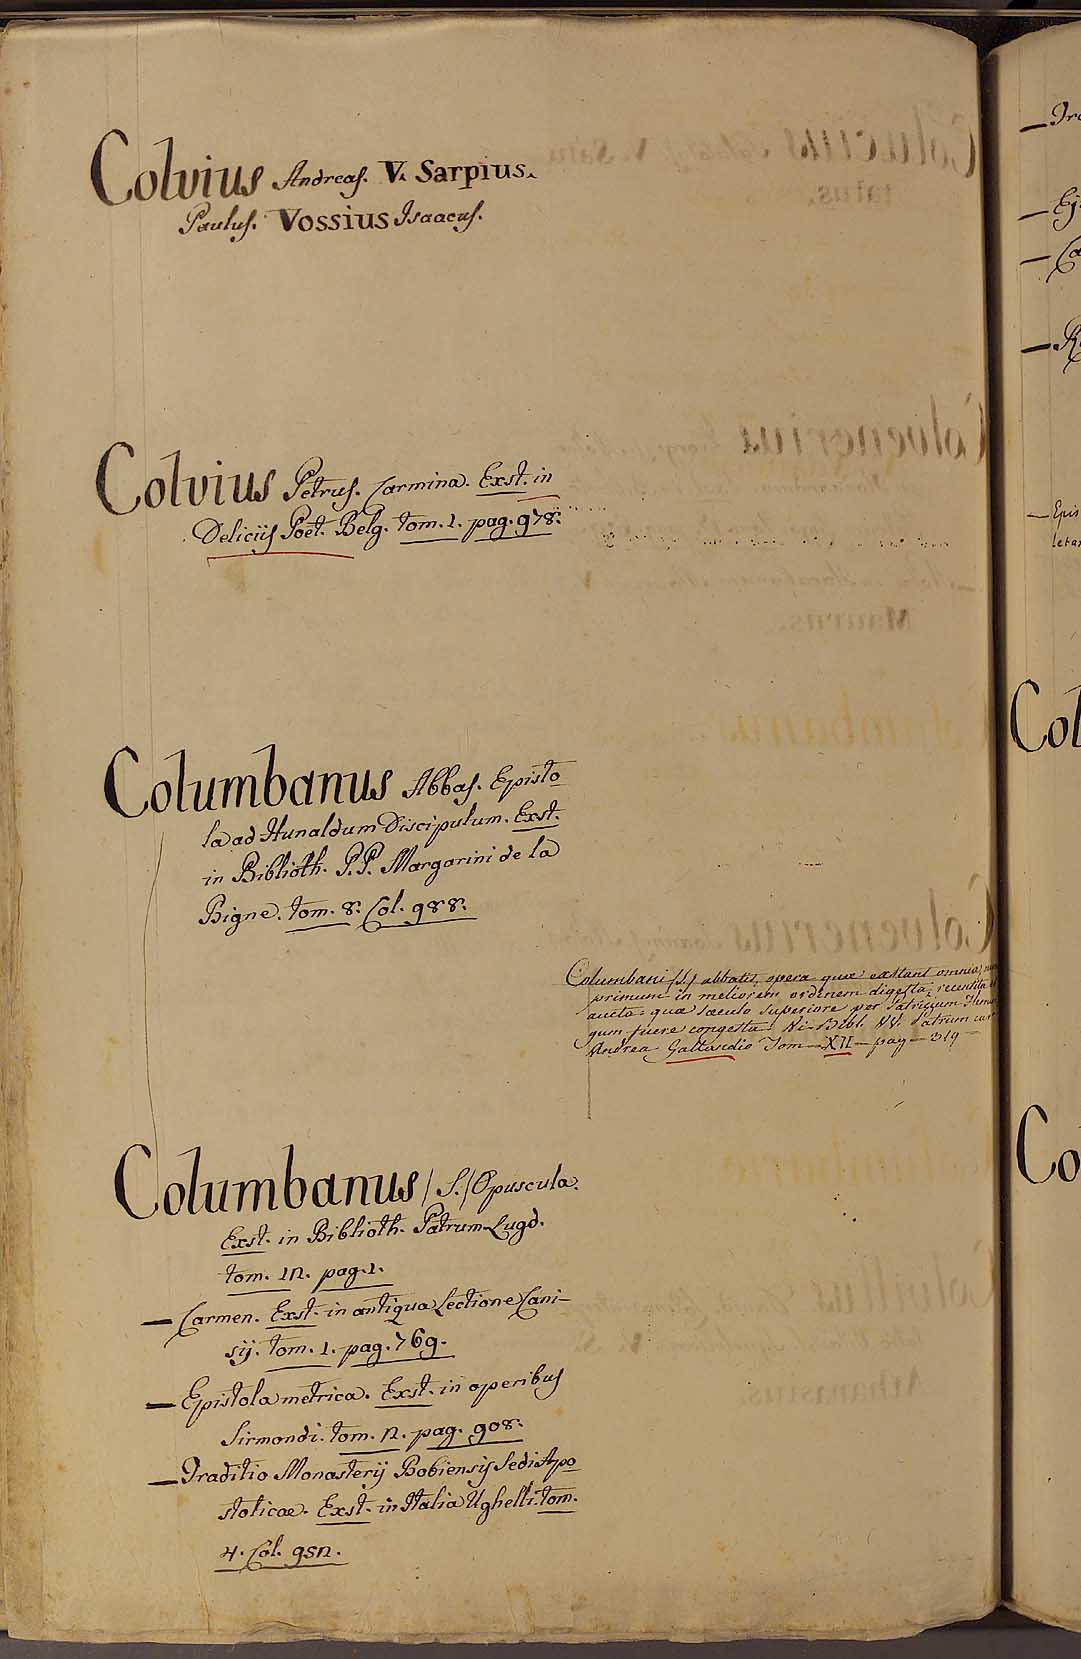 Colvius Andreas. V. Sarpius.
Paulus. Vossius Isaacus.
Colvius Petrus. Carmina. Exst. in
Deliciis Poët. Belg. tom. 1. pag. 978.
Columbanus Abbas. Episto
la ad Hunaldum Discipulum. Exst.
in Biblioth. P.P. Margarini de la
Bigne. tom. 8. Col. 988.
Columbani (S.) abbatis, opera quæ extant omnia,
primum in meliorem ordinem digesta, recensita
aucta: quæ sæculo superiore per Patricium
gum fuere congesta. Bibl. VV. Patrum cur
Andrea Gallandio Tom—XII—pag—319—
Columbanus /S./ Opuscula.
Exst. in Biblioth. Patrum Lugd.
tom. 12. pag. 1.
— Carmen. Exst. in antiqua Lectione Cani–
sij. tom. 1. pag. 769.
— Epistola metrica. Exst. in operibus
Sirmondi. tom. 2. pag. 908.
— Traditio Monasterij Bobiensis Sedi Apo
stolicæ. Exst. in Italia Ughelli. tom.
4. Col. 952.
— Ej
— Ca
— Epis
Col
Co